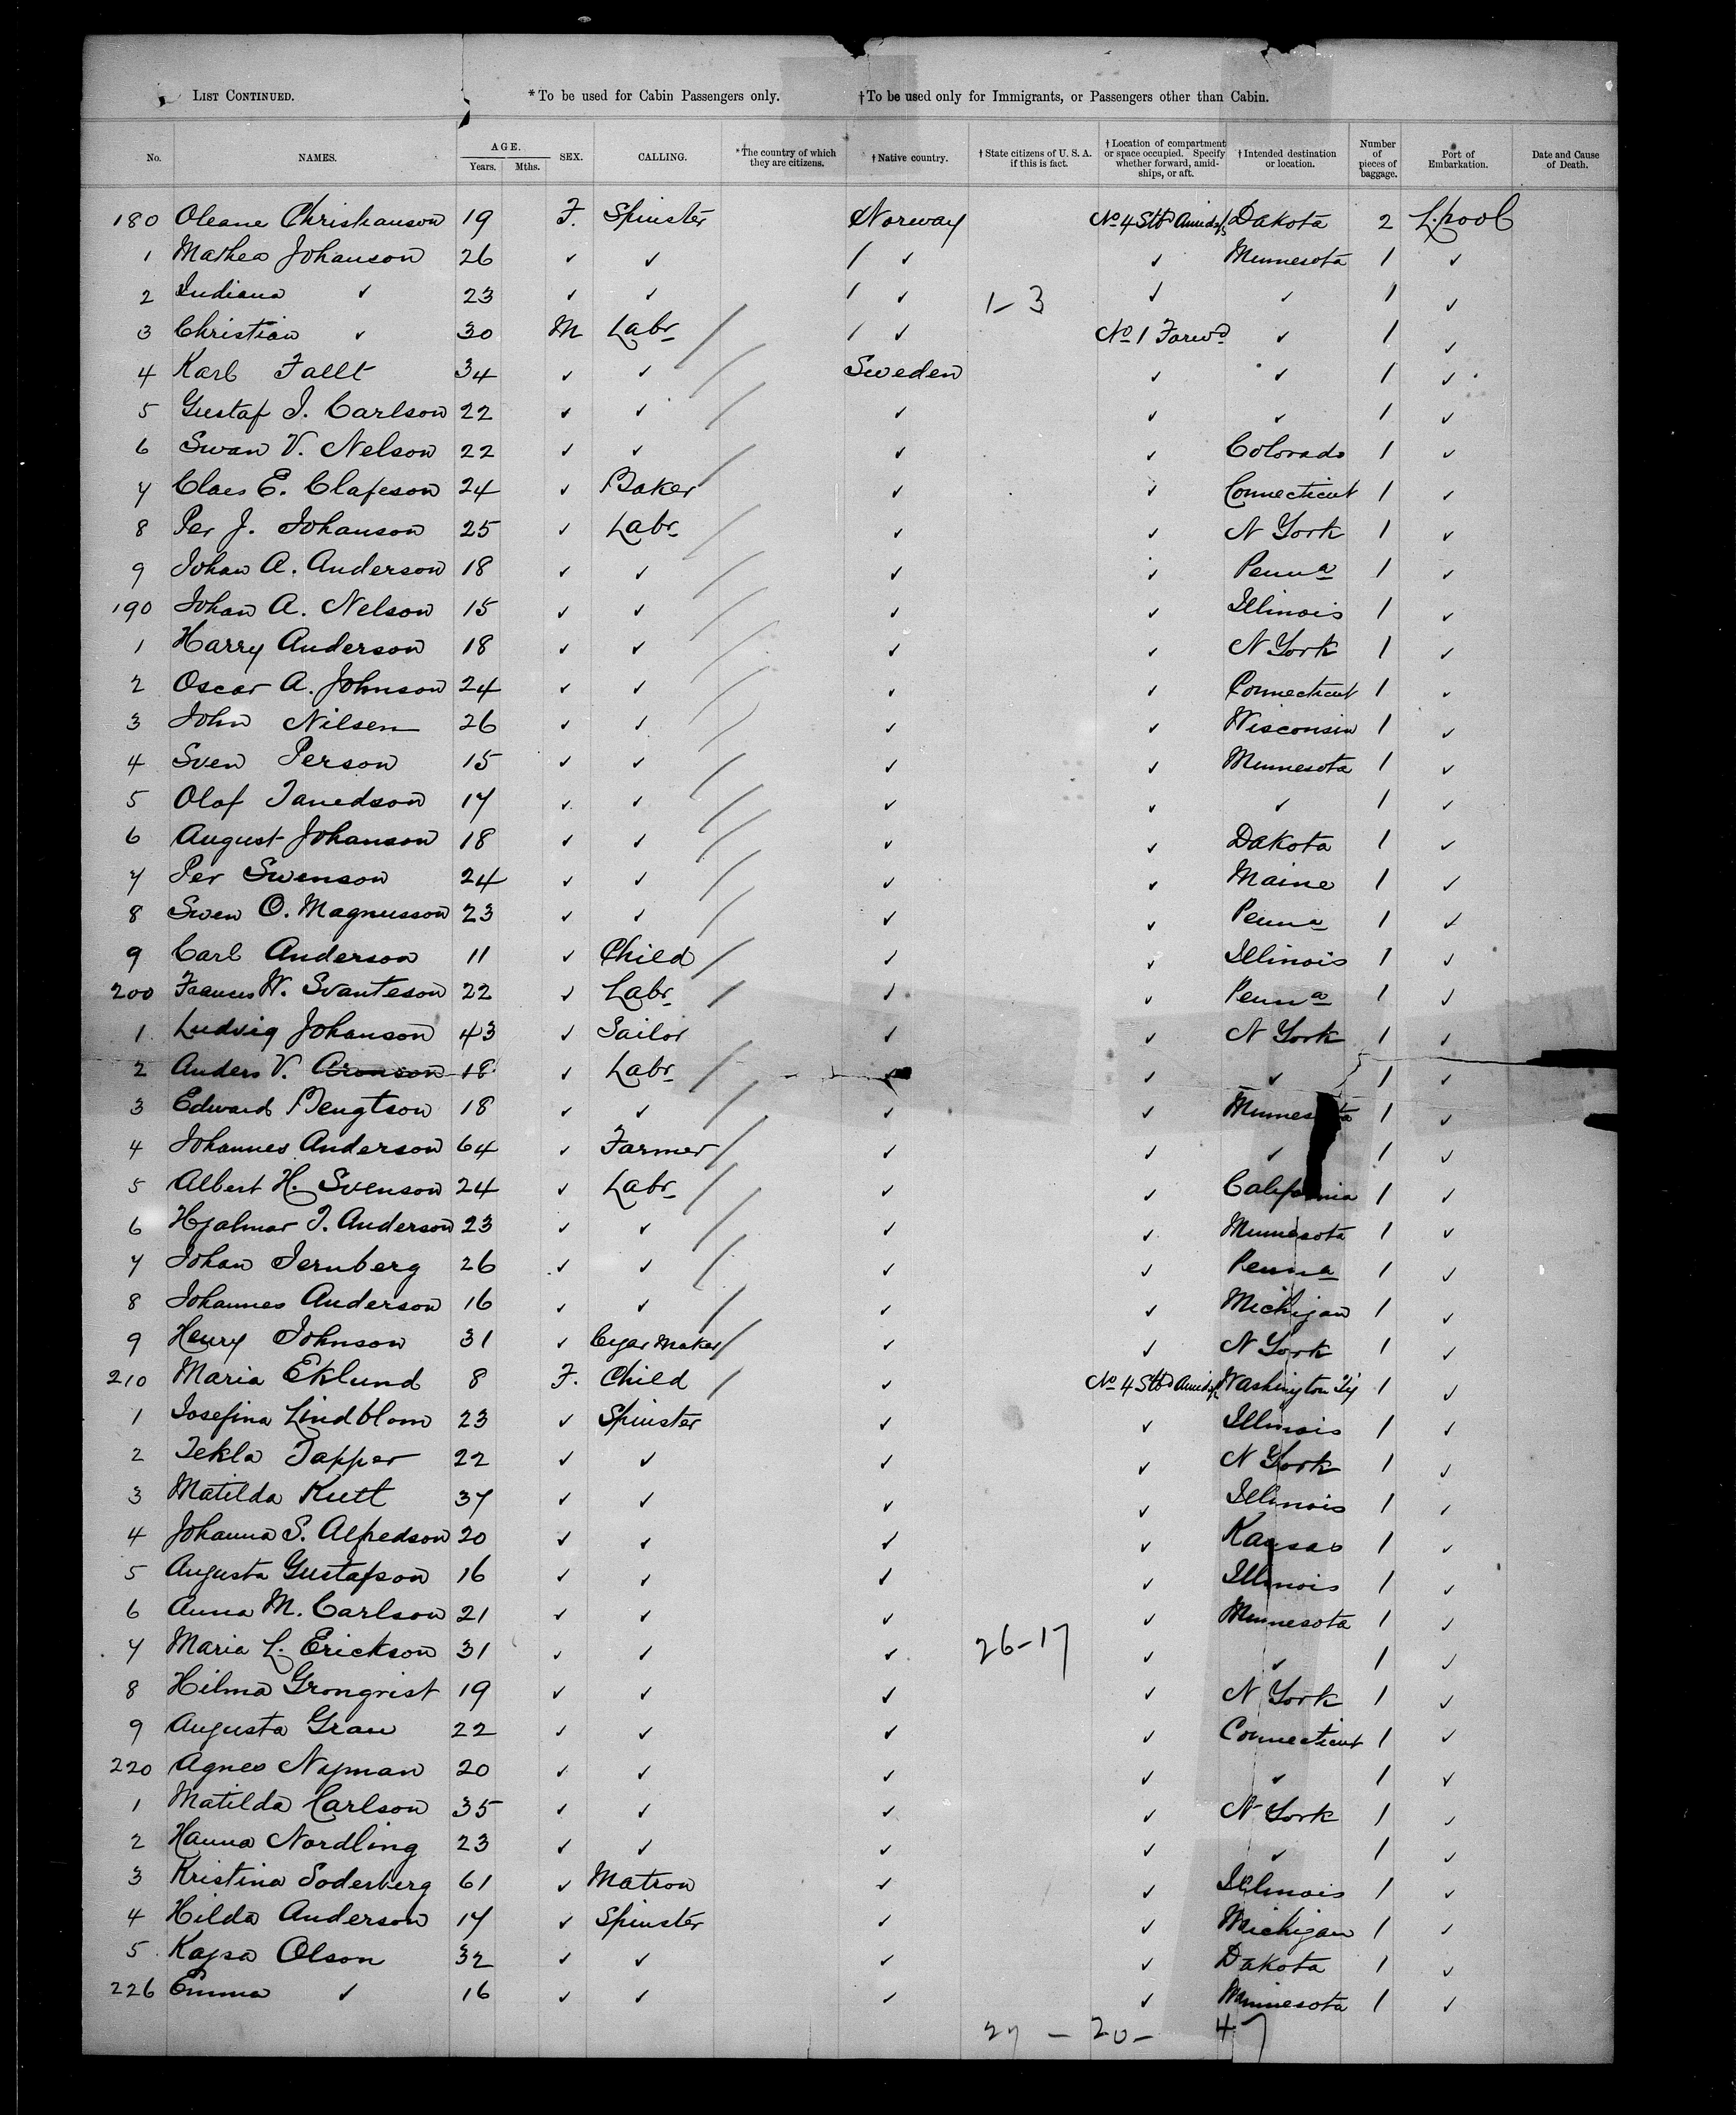 LIST CONTINUED. *To be used for Cabin Passengers only. †To be used only for Immigrants, or Passengers other than Cabin.
No. NAMES. AGE. Years. Mths. SEX. CALLING. *The country of which they are citizens. †Native country. †State citizens of U. S. A. if this is fact. †Location of compartment or space occupied. Specify whether forward, amidships, or aft. †Intended destination or location. Number of pieces of baggage. Port of Embarkation. Date and Cause of Death.
180 Oleane Christianson 19 F. Spinster Norway No 4 Stbd Amids Dakota 2 L.pool
1 Mathea Johanson 26 ✓ ✓ / ✓ ✓ Minnesota 1 ✓
2 Indiana ✓ 23 ✓ ✓ / ✓ 1-3 ✓ ✓ 1 ✓
3 Christian ✓ 30 M Labr / ✓ No 1 Forwd ✓ 1 ✓
4 Karl Fallt 34 ✓ ✓ Sweden ✓ ✓ 1 ✓
5 Gustaf J. Carlson 22 ✓ ✓ ✓ ✓ ✓ 1 ✓
6 Swan V. Nelson 22 ✓ ✓ ✓ ✓ Colorado 1 ✓
7 Claes E. Clafeson 24 ✓ Baker ✓ ✓ Connecticut 1 ✓
8 Per J. Johanson 25 ✓ Labr ✓ ✓ N York 1 ✓
9 Johan A. Anderson 18 ✓ ✓ ✓ ✓ Penna 1 ✓
190 Johan A. Nelson 15 ✓ ✓ ✓ ✓ Illinois 1 ✓
1 Harry Anderson 18 ✓ ✓ ✓ ✓ N York 1 ✓
2 Oscar A. Johnson 24 ✓ ✓ ✓ ✓ Connecticut 1 ✓
3 John Nilsen 26 ✓ ✓ ✓ ✓ Wisconsin 1 ✓
4 Sven Person 15 ✓ ✓ ✓ ✓ Minnesota 1 ✓
5 Olof 17 ✓ ✓ ✓ ✓ ✓ 1 ✓
6 August Johanson 18 ✓ ✓ ✓ ✓ Dakota 1 ✓
7 Per Swenson 24 ✓ ✓ ✓ ✓ Maine 1 ✓
8 Swen O. Magnusson 23 ✓ ✓ ✓ ✓ Penna 1 ✓
9 Carl Anderson 11 ✓ Child ✓ ✓ Illinois 1 ✓
200 Frances W. Svanteson 22 ✓ Labr ✓ ✓ Penna 1 ✓
1 Ludvig Johanson 43 ✓ Sailor ✓ ✓ N York 1 ✓
2 Anders V. Aronson 18 ✓ Labr ✓ ✓ ✓ 1 ✓
3 Edward Bengtson 18 ✓ ✓ ✓ ✓ Minnesota 1 ✓
4 Johannes Anderson 64 ✓ Farmer ✓ ✓ ✓ 1 ✓
5 Albert H. Svenson 24 ✓ Labr ✓ ✓ California 1 ✓
6 Hjalmar J. Anderson 23 ✓ ✓ ✓ ✓ Minnesota 1 ✓
7 Johan Jernberg 26 ✓ ✓ ✓ ✓ Penna 1 ✓
8 Johannes Anderson 16 ✓ ✓ ✓ ✓ Michigan 1 ✓
9 Henry Johnson 31 ✓ Cigar Maker ✓ ✓ N York 1 ✓
210 Maria Eklund 8 F. Child ✓ No 4 Stbd Amids Washington Ty 1 ✓
1 Josefina Lindblom 23 ✓ Spinster ✓ ✓ Illinois 1 ✓
2 Tekla Tapper 22 ✓ ✓ ✓ ✓ N York 1 ✓
3 Matilda 37 ✓ ✓ ✓ ✓ Illinois 1 ✓
4 Johanna S. Alfredson 20 ✓ ✓ ✓ ✓ Kansas 1 ✓
5 Augusta Gustafson 16 ✓ ✓ ✓ ✓ Illinois 1 ✓
6 Anna M. Carlson 21 ✓ ✓ ✓ ✓ Minnesota 1 ✓
7 Maria L. Erickson 31 ✓ ✓ ✓ 26-17 ✓ ✓ 1 ✓
8 Hilma Gronqvist 19 ✓ ✓ ✓ ✓ N York 1 ✓
9 Augusta Gran 22 ✓ ✓ ✓ ✓ Connecticut 1 ✓
220 Agnes Nyman 20 ✓ ✓ ✓ ✓ ✓ 1 ✓
1 Matilda Carlson 35 ✓ ✓ ✓ ✓ N York 1 ✓
2 Hanna Nordling 23 ✓ ✓ ✓ ✓ ✓ 1 ✓
3 Kristina Soderberg 61 ✓ Matron ✓ ✓ Illinois 1 ✓
4 Hilda Anderson 17 ✓ Spinster ✓ ✓ Michigan 1 ✓
5 Kajsa Olson 32 ✓ ✓ ✓ ✓ Dakota 1 ✓
226 Emma ✓ 16 ✓ ✓ ✓ ✓ Minnesota 1 ✓
27 - 20 - 47